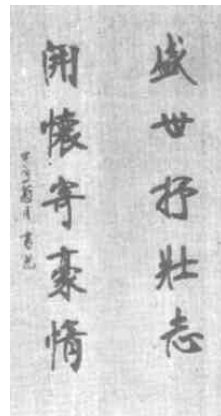 盛世抒壯志
開懷寄豪情